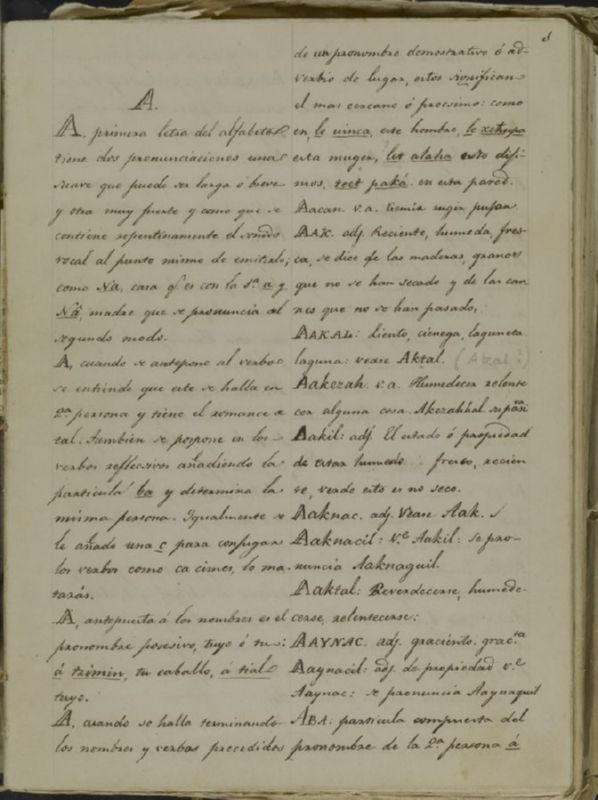 A.
A, primera letra del alfabeto
tiene dos pronunciaciones una
suave que puede ser larga ó breve
y otra muy fuerte y como que se
contiene repentinamente el sonido
vocal al punto mismo de emitirlo;
como Na, casa qe es con la 1.a a y
Ná, madre que se pronuncia del
segundo modo.
A, cuando se antepone al verbo
se entiende que este se halla en
2.a persona y tiene el romance de
tal. Tambien se pospone en los
verbos reflecsivos añadiendo la
particula ba y determina la
misma persona. Igualmente se
le añade una c para conjugar
los verbos como ca cimes, lo ma-
tarás.
A, antepuesta á los nombres es el
pronombre posesivo, tuyo ó tu:
á tzimin, tu caballo, á tial
tuyo.
A, cuando se halla terminando
los nombres y verbos precedidos
de un pronombre demostrativo ó ad-
verbio de lugar, estos significan
el mas cercano ó procsimo: como
en, le uinca, este hombre, le
esta muger, let alaha esto diji-
mos, teet paká en esta pared.
Aacan. v.a. Gemir rugir pujar.
AAK. adj. Reciente, humeda, fres-
ca, se dice de las maderas, granos
que no se han secado y de las car-
nes que no se han pasado,
AAKAL: liento, cienega, laguneta
laguna: vease Aktal. (Akal:)
Aakezah. v.a. Humedecer relente
cer alguna cosa. Akezahhal su pasiva
Aakil: adj. El estado ó propiedad
de estar humedo fresco, recien
te, verde esto es no seco.
Aaknac. adj. Vease Aak.
Aaknacil: v.e Aakil: se pro-
nuncia Aaknaquil.
Aaktal: Reverdecerse, humede-
cerse, relentecerse:
AAYNAC. adj. graciento. grac.ta
Aaynacil: adj. de propiedad v.e
Aaynac: se pronuncia Aaynaquil
ABA: particula compuesta del
pronombre de la 2.a persona á